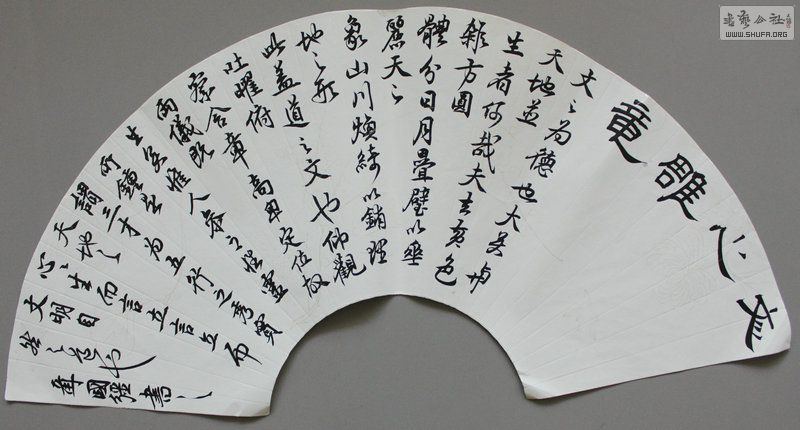 文心雕竜
文之为德也大矣與
天地並
生者何哉夫玄黃色
雜方圓
體分日月疊璧以垂
麗天之
象山川煥綺以鋪理
地之形
此蓋道之文也仰觀
吐曜俯
察含章高卑定位故
兩儀既
生矣惟人參之性靈
所鍾是
謂三才为五行之秀實
天地之
心心生而言立言立而
文明自
然之道也
國經書
書藝公社
WWW.SHUFA.ORG